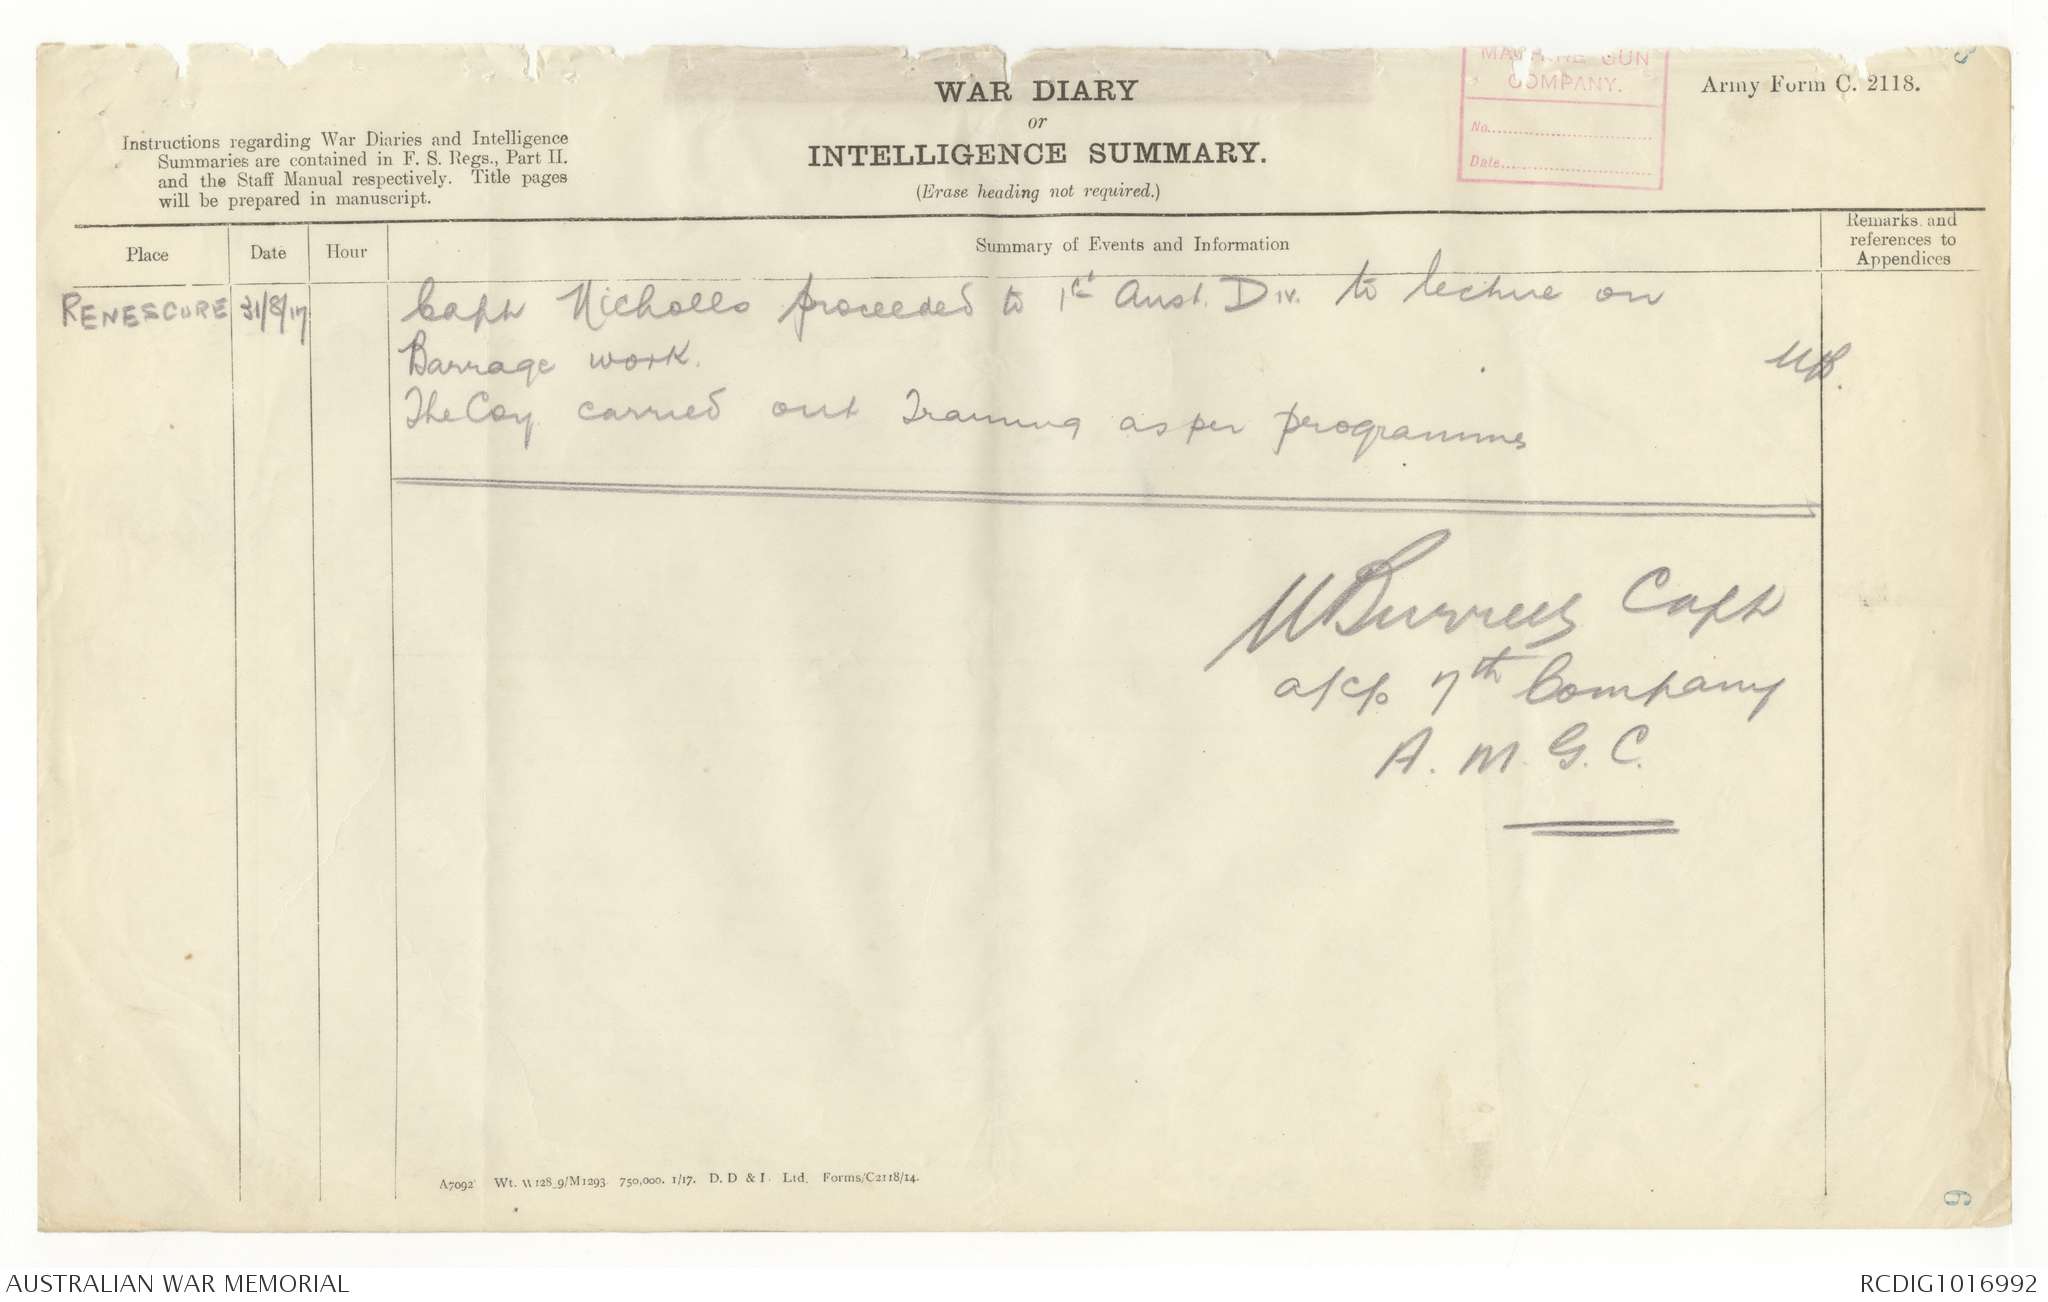 MACHINE GUN
COMPANY.
No.
Date
WAR DIARY
or
INTELLIGENCE SUMMARY.
(Erase heading not required.)
Army Form C. 2118.
Instructions regarding War Diaries and Intelligence
Summaries are contained in F. S. Regs., Part II.
and the Staff Manual respectively. Title pages
will be prepared in manuscript.
Place
Date
Hour
Summary of Events and Information
Remarks and
references to
Appendices
RENESCURE 31/8/17 Capt Nicholls proceeded to 1st Aust. Div. to lecture on
Barrage work.
The Coy carried out Training as per programme
Capt
a/c/o 7th Company
A. M. G. C.
750,000. 1/17. D. D & L. Ltd. Forms/C2118/14.
9
AUSTRALIAN WAR MEMORIAL
RCDIG1016992